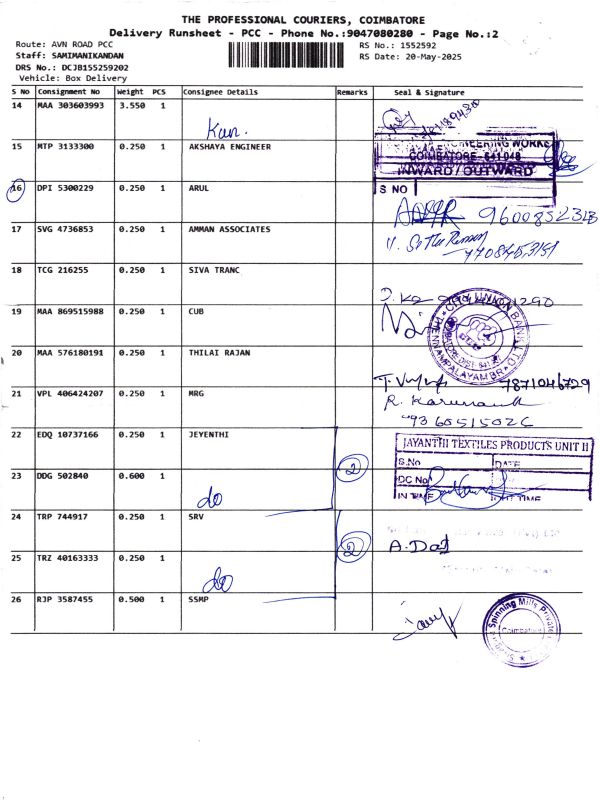 THE PROFESSIONAL COURIERS, COIMBATORE
Delivery Runsheet - PCC - Phone No.:9047080280 - Page No.:2
Route: AVN ROAD PCC
Staff: SAMIMANIKANDAN
DRS No.: DCJB155259202
Vehicle: Box Delivery
RS No.: 1552592
RS Date: 20-May-2025
S No Consignment No Weight PCS Consignee Details Remarks Seal & Signature
14 MAA 303603993 3.550 1
15 MTP 3133300 0.250 1 AKSHAYA ENGINEER
ENGINEERING WORKS
COIMBATORE - 641 048
INWARD / OUTWARD
S NO
16 DPI 5300229 0.250 1 ARUL
17 SVG 4736853 0.250 1 AMMAN ASSOCIATES
18 TCG 216255 0.250 1 SIVA TRANC
19 MAA 869515988 0.250 1 CUB
CITY UNION BANK LTD
20 MAA 576180191 0.250 1 THILAI RAJAN
7871046729
21 VPL 406424207 0.250 1 MRG
22 EDQ 10737166 0.250 1 JEYENTHI
JAYANTHI TEXTILES PRODUCTS UNIT II
S.No DATE
DC No
IN TIME OUT TIME
2
23 DDG 502840 0.600 1
do
24 TRP 744917 0.250 1 SRV
2
25 TRZ 40163333 0.250 1
do
26 RJP 3587455 0.500 1 SSMP
Spinning Mills Private
Coimbatore